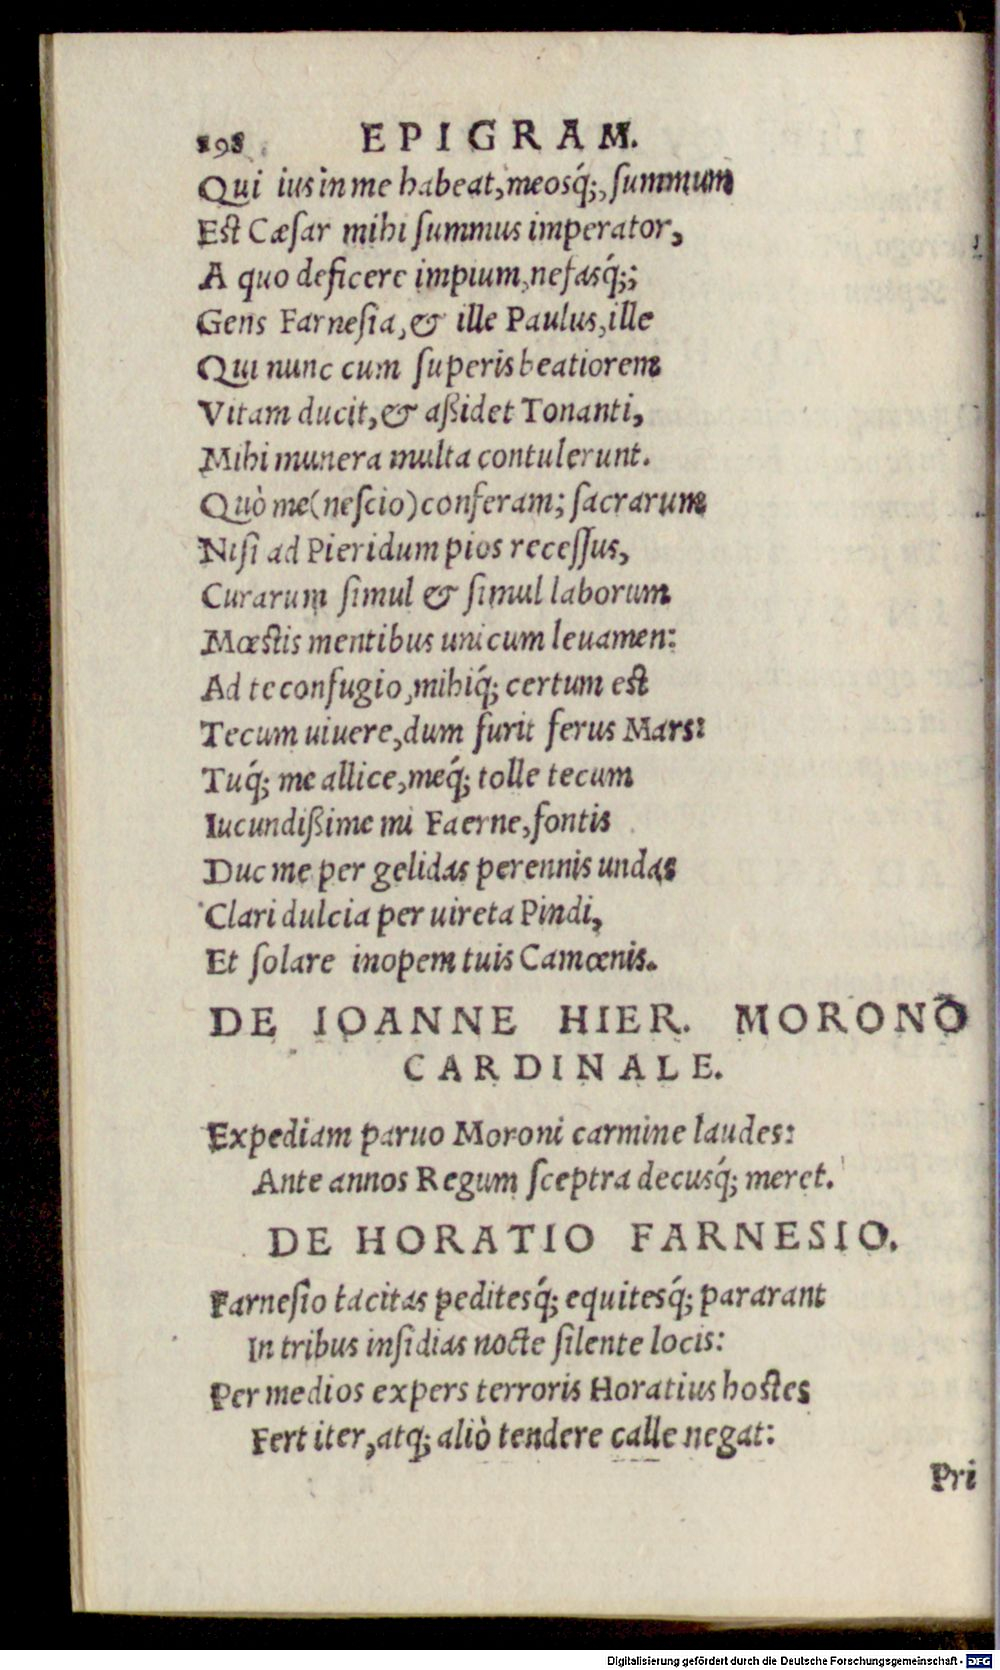 198 EPIGRAM.
Qui ius in me habeat, meosq́;, ſummum
Eſt Cæſar mihi ſummus imperator,
A quo deficere impium, nefasq́;;
Gens Farneſia, & ille Paulus, ille
Qui nunc cum ſuperis beatiorem
Vitam ducit, & aßidet Tonanti,
Mihi munera multa contulerunt.
Quò me (neſcio) conferam; ſacrarum
Niſi ad Pieridum pios receſſus,
Curarum ſimul & ſimul laborum
Mœſtis mentibus unicum leuamen:
Ad te confugio, mihiq́; certum eſt
Tecum uiuere, dum furit ferus Mars:
Tuq́; me allice, meq́; tolle tecum
Iucundißime mi Faerne, fontis
Duc me per gelidas perennis undas
Clari dulcia per uireta Pindi,
Et ſolare inopem tuis Camœnis.
DE IOANNE HIER. MORONO
CARDINALE.
Expediam paruo Moroni carmine laudes:
Ante annos Regum ſceptra decusq́; meret.
DE HORATIO FARNESIO.
Farneſio tacitas peditesq́; equitesq́; pararant
In tribus inſidias nocte ſilente locis:
Per medios expers terroris Horatius hoſtes
Fert iter, atq; aliò tendere calle negat:
Pri
Digitalisierung gefördert durch die Deutsche Forschungsgemeinschaft - DFG